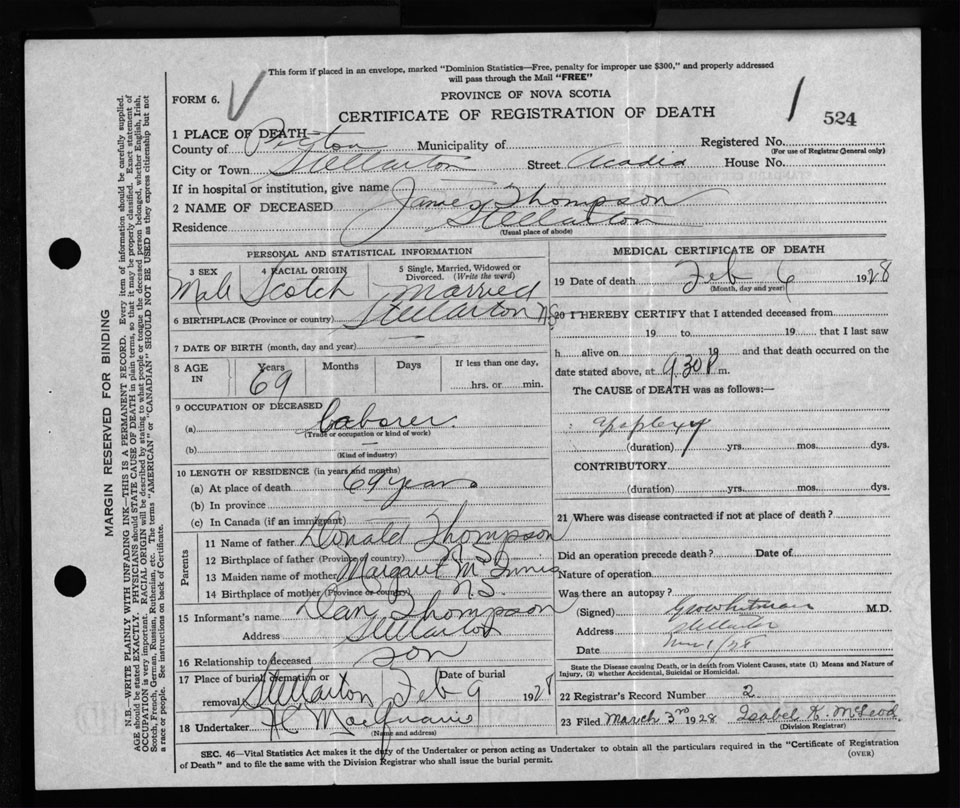 This form if placed in an envelope, marked "Dominion Statistics—Free, penalty for improper use $300," and properly addressed
will pass through the Mail "FREE"
PROVINCE OF NOVA SCOTIA
FORM 6.
CERTIFICATE OF REGISTRATION OF DEATH
524
1 PLACE OF DEATH—
County of Pictou Municipality of Registered No.
(For use of Registrar General only)
City or Town Stellarton Street Acadia House No.
If in hospital or institution, give name
2 NAME OF DECEASED James Thompson
Residence Stellarton
(Usual place of abode)
PERSONAL AND STATISTICAL INFORMATION
3 SEX 4 RACIAL ORIGIN 5 Single, Married, Widowed or Divorced. (Write the word)
Male Scotch Married
6 BIRTHPLACE (Province or country) Stellarton N.S.
7 DATE OF BIRTH (month, day and year) —
8 AGE IN Years Months Days If less than one day,
69 hrs. or min.
9 OCCUPATION OF DECEASED
(a) Laborer
(Trade or occupation or kind of work)
(b) —
(Kind of industry)
10 LENGTH OF RESIDENCE (in years and months)
(a) At place of death 69 years
(b) In province
(c) In Canada (if an immigrant)
Parents
11 Name of father Donald Thompson
12 Birthplace of father (Province or country) N.S.
13 Maiden name of mother Margaret McInnis
14 Birthplace of mother (Province or country) N.S.
15 Informant's name Dan Thompson
Address Stellarton
16 Relationship to deceased son
17 Place of burial, cremation or removal Stellarton Date of burial Feb 9 1928
18 Undertaker
(Name and address)
MEDICAL CERTIFICATE OF DEATH
19 Date of death Feb 6 1928
(Month, day and year)
20 I HEREBY CERTIFY that I attended deceased from
19 to 19 that I last saw
h alive on 19 and that death occurred on the
date stated above, at 9.30 P m.
The CAUSE of DEATH was as follows:—
Apoplexy
(duration) yrs. mos. dys.
CONTRIBUTORY
(duration) yrs. mos. dys.
21 Where was disease contracted if not at place of death?
Did an operation precede death? Date of
Nature of operation
Was there an autopsy?
(Signed) Geo Whitman M.D.
Address Stellarton
Date
State the Disease causing Death, or in death from Violent Causes, state (1) Means and Nature of
Injury, (2) whether Accidental, Suicidal or Homicidal.
22 Registrar's Record Number 2
23 Filed March 3rd 1928 Isabel K. McLeod
(Division Registrar)
SEC. 46—Vital Statistics Act makes it the duty of the Undertaker or person acting as Undertaker to obtain all the particulars required in the "Certificate of Registration
of Death" and to file the same with the Division Registrar who shall issue the burial permit.
(OVER)
MARGIN RESERVED FOR BINDING
N.B.—WRITE PLAINLY WITH UNFADING INK—THIS IS A PERMANENT RECORD. Every item of information should be carefully supplied.
AGE should be stated EXACTLY. PHYSICIANS should STATE CAUSE OF DEATH in plain terms, so that it may be properly classified. Exact statement of
OCCUPATION is very important. RACIAL ORIGIN will be described by stating to what people or tongue the deceased person belonged, whether English, Irish,
Scotch, French, German, Russian, Ruthenian, etc. The terms "AMERICAN" or "CANADIAN" SHOULD NOT BE USED as they express citizenship but not
a race or people. See instructions on back of Certificate.